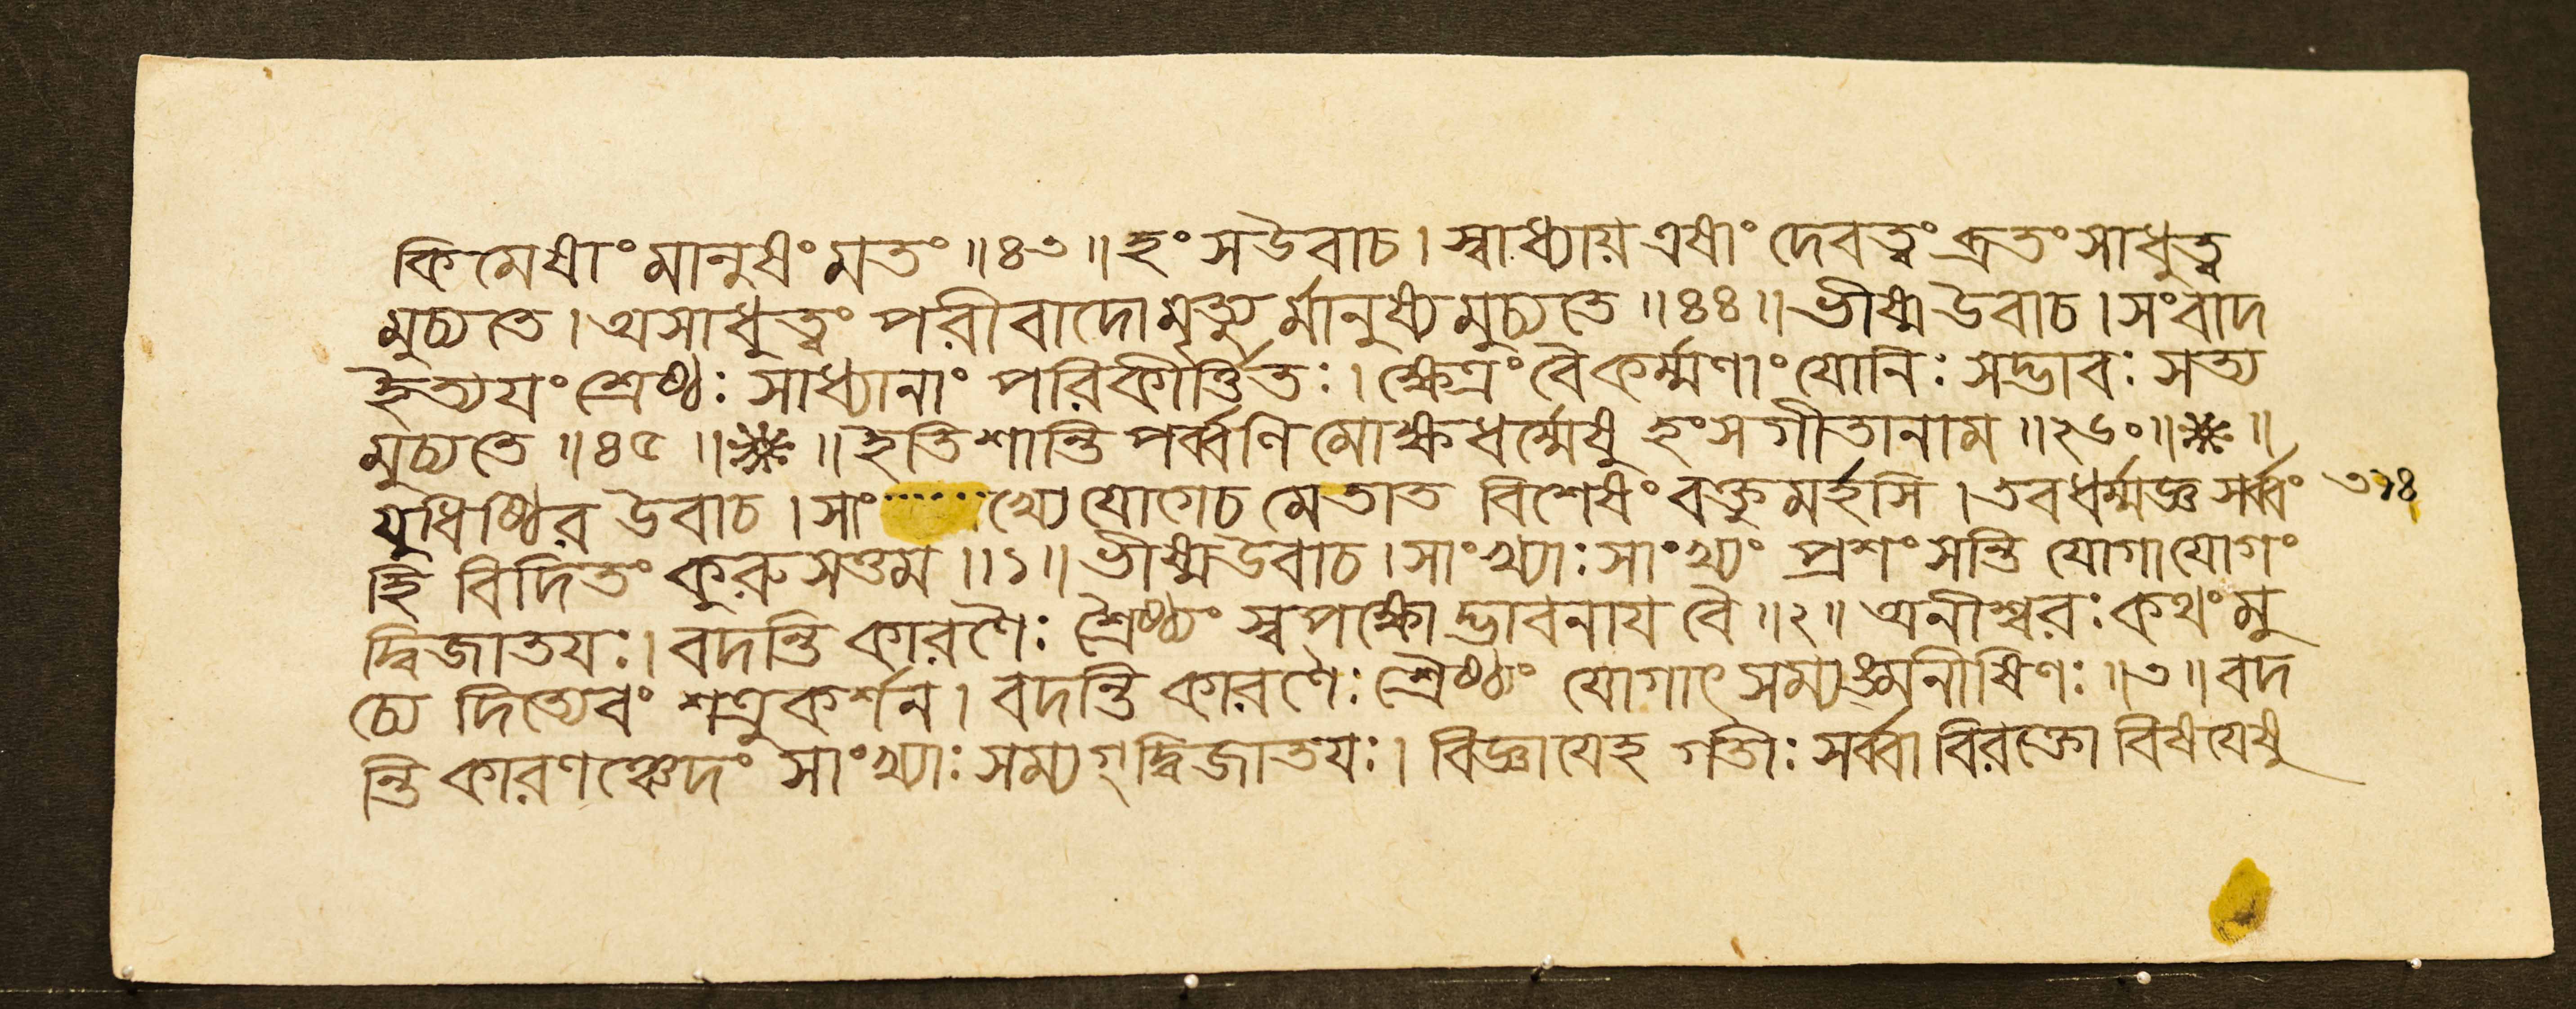 কিমেষাং মানুষং মতং ॥ ৪৩ ॥ হংসউবাচ । স্বাধ্যায় এষাং দেবত্বং ব্রতং সাধুত্ব
মুচ্যতে । অসাধুত্বং পরীবাদো মৃত্যুর্মানুষ্যমুচ্যতে ॥ ৪৪ ॥ ভীষ্ম উবাচ । সংবাদ
ইত্যযং শ্রেষ্ঠঃ সাধ্যানাং পরিকীর্ত্তিতঃ । ক্ষেত্রং বৈ কর্ম্মণাং যোনিঃ সদ্ভাবঃ সত্য
মুচ্যতে ॥ ৪৫ ॥ ❋ ॥ ইতি শান্তিপর্ব্বণি মোক্ষধর্ম্মেষু হংসগীতানাম ॥ ২৬০ ॥ ❋ ॥
যুধিষ্ঠির উবাচ । সাং······খ্যে যোগেচ মেতাত বিশেষং বক্তুমর্হসি । তবধর্ম্মজ্ঞ সর্ব্বং
হি বিদিতং কুরুসত্তম ॥ ১ ॥ ভীষ্মউবাচ । সাংখ্যাঃ সাংখ্যং প্রশংসন্তি যোগাযোগং
দ্বিজাতযঃ । বদন্তি কারণৈঃ শ্রৈষ্ঠ্যং স্বপক্ষোদ্ভাবনায বৈ ॥ ২ ॥ অনীশ্বরঃ কথং মু
চ্যেদিত্যেবং শত্রুকর্শন । বদন্তি কারণৈঃ শ্রৈষ্ঠ্যং যোগাৎ সম্যঙ্মনীষিণঃ ॥ ৩ ॥ বদ
ন্তি কারণঞ্চেদং সাংখ্যাঃ সম্যগ্দ্বিজাতযঃ । বিজ্ঞাযেহ গতীঃ সর্ব্বা বিরক্তো বিষযেষু